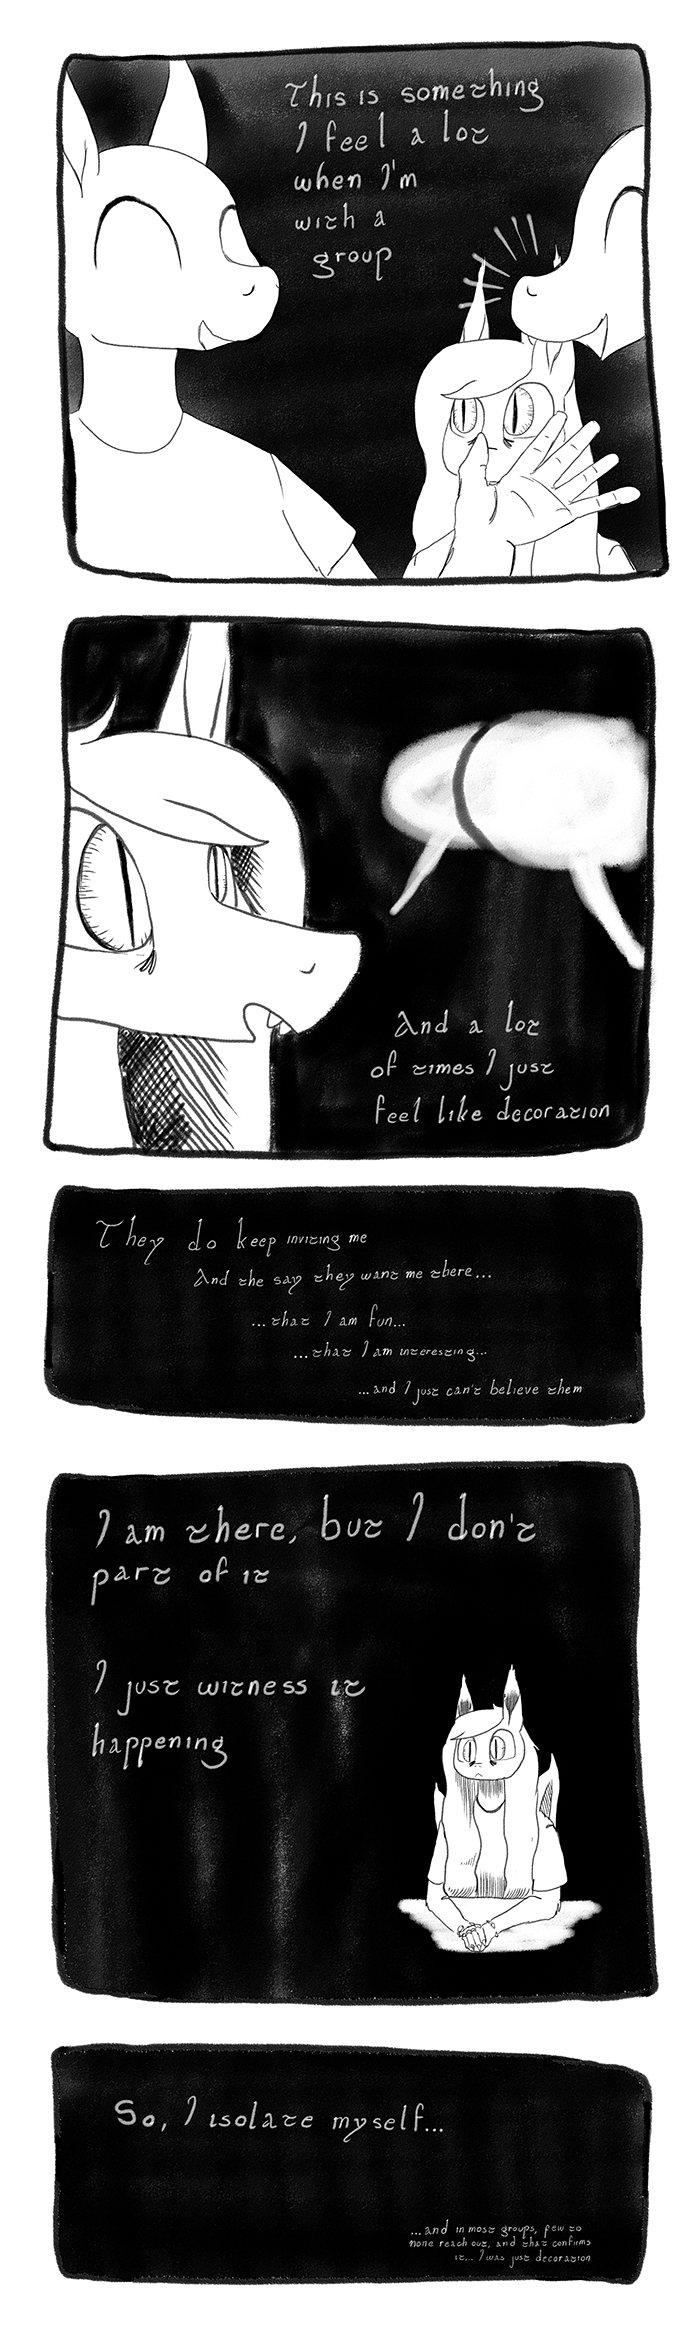 This is something
I feel a lot
when I'm
with a
group
And a lot
of times I just
feel like decoration
They do keep inviting me
And the say they want me there...
...that I am fun...
...that I am interesting...
...and I just can't believe them
I am there, but I don't
part of it
I just witness it
happening
So, I isolate myself...
...and in most groups, few to
none reach out, and that confirms
it... I was just decoration